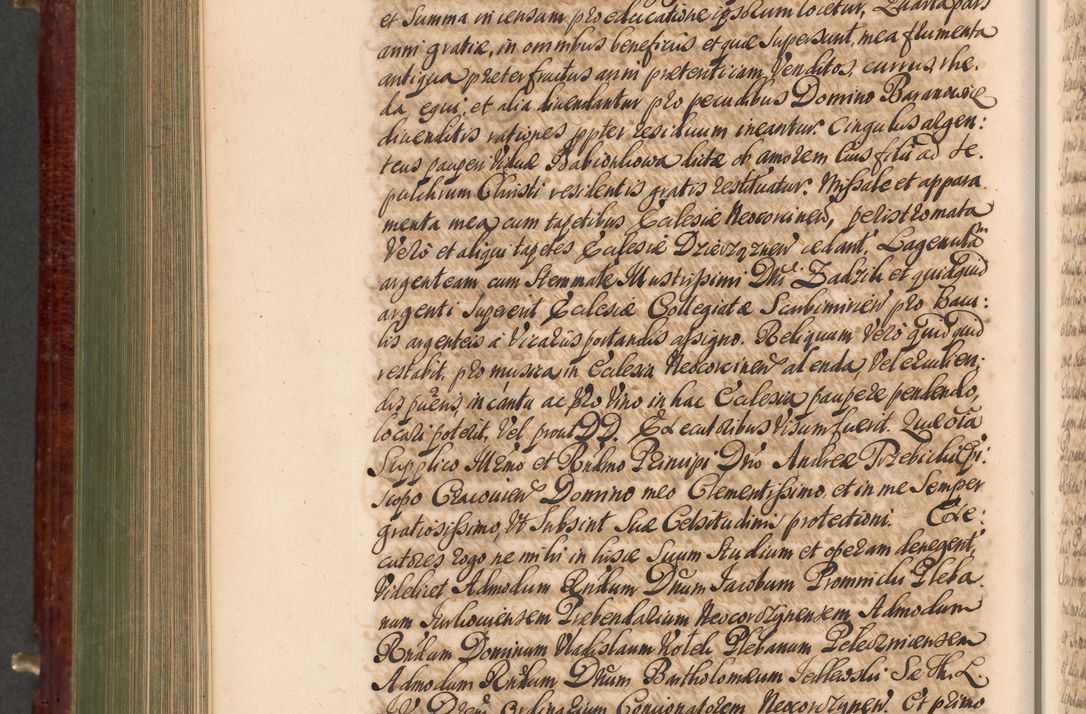 et Summa in censum pro educatione ipsorum locetur, Quarta pars
anni gratiæ, in omnibus beneficiis et quæ supersunt, mea frumenta
antiqua præter fructus anni prætenti iam venditos, currus, rhe-
da equi, et alia divendantur pro pecudibus Domino Baranowie
divenditis rationes ppter residuum ineantur. Cingulus argen:
teus pauperi viduæ Babionkowa dictæ ob amorem eius filii ad se-
pulchrum Christi residentis gratis restituatur. Missale et appara-
menta mea cum tapetibus Ecclesiæ Neocorcinen, peristromata
Vero et aliqui tapetes Ecclesiæ Dzierzqznen cedant, Lagenulam
argenteam cum stemmate Illustrissimi Dni Zadzik et quidquid
argenti superit Ecclesiæ Collegiatæ Scarbimirien pro Bacu:
lis argenteis à Vicariis portandis assigno. Reliquum Vero quidquid
restabit, pro musica in Ecclesia Neocorcinen alenda vel erudien:
dis pueris, in cantu ac pro Vino in hac Ecclesia paupere pendendo,
locari poterit, Vel prout DD. Executoribus visum fuerit. Quæ oia
Supplico Illmo et Rndmo Principi Dno Andreæ Trzebicki Epi:
scopo Cracovien Domino meo Clementissimo, et in me semper
gratiosissimo, Vt subsint suæ Celsitudinis protectioni. Exe:
cutores rogo ne mihi in hisce suum studium et operam denegent,
Videlicet Admodum Rndum Dnum Jacobum Promnicki Pleba-
num Præbendarium Neocorzynensem Admodum
Rndum Dominum Vladislaum Kotek Plebanum Pelczniensem
Admodum Rndum Dnum Bartholomæum Sedlewski Se Th. L.
Ordinarium Concionatorem Neocorzynen. Et primo